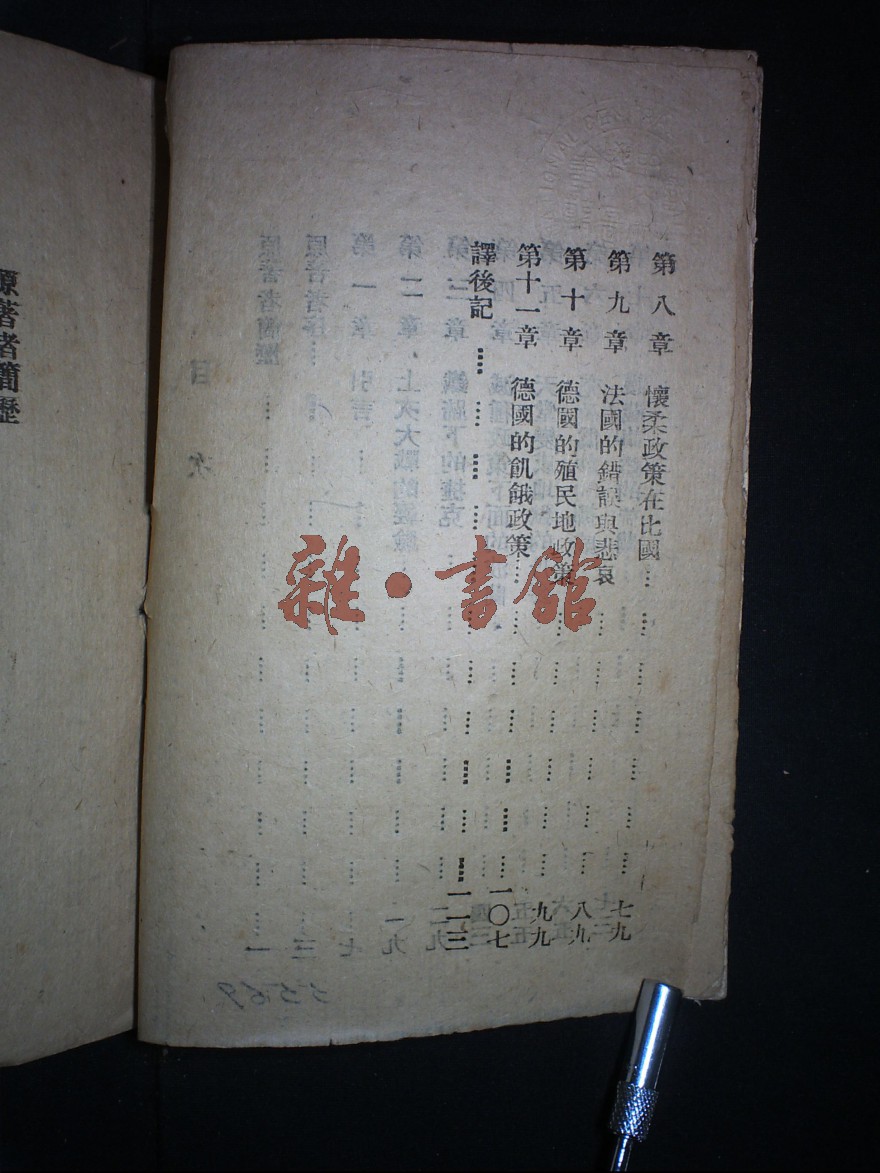 第八章 懷柔政策在比國 七九
第九章 法國的錯誤與悲哀 八九
第十章 德國的殖民地政策 九九
第十一章 德國的飢餓政策 一〇七
譯後記 一一三
原著者簡歷
雜·書館